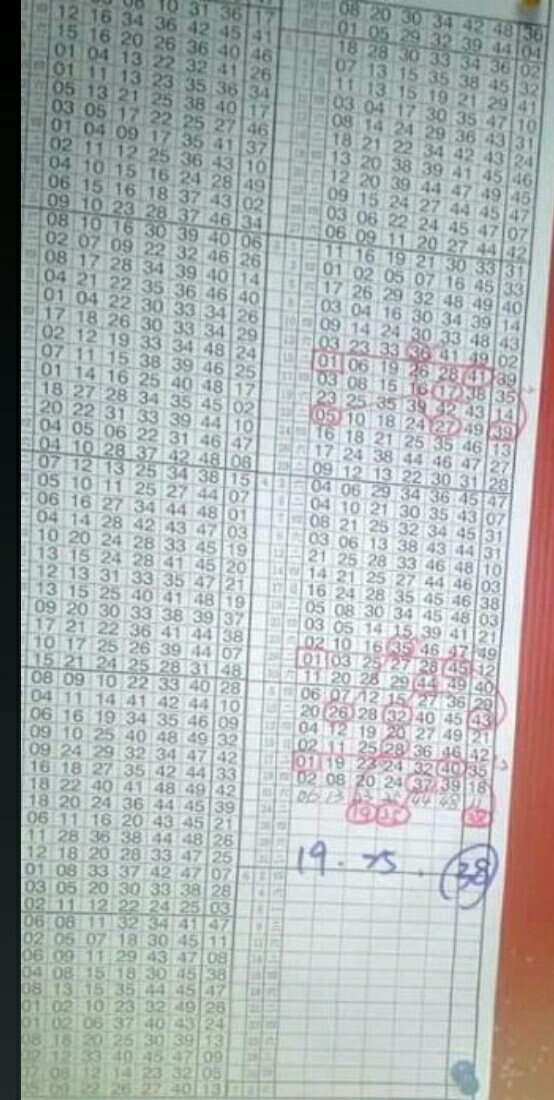 12 16 34 36 42 45 41
15 16 20 26 36 40 46
01 04 13 22 32 41 26
01 11 13 23 35 36 34
05 13 21 25 38 40 17
03 05 17 22 25 27 46
01 04 09 17 35 41 37
02 11 12 25 36 43 10
04 10 15 16 24 28 49
06 15 16 18 37 43 02
09 10 23 28 37 46 34
08 10 16 30 39 40 06
02 07 09 22 32 46 26
08 17 28 34 39 40 14
04 21 22 35 36 46 40
01 04 22 30 33 34 26
17 18 26 30 33 34 29
02 12 19 33 34 48 24
07 11 15 38 39 46 25
01 14 16 25 40 48 17
18 27 28 34 35 45 02
20 22 31 33 39 44 10
04 05 06 22 31 46 47
04 10 28 37 42 48 08
07 12 13 25 34 38 15
05 10 11 25 27 44 07
06 16 27 34 44 48 01
04 14 28 42 43 47 03
10 20 24 28 33 45 19
13 15 24 28 41 45 20
12 13 31 33 35 47 21
13 15 25 40 41 48 19
09 20 30 33 38 39 37
17 21 22 36 41 44 38
10 17 25 26 39 44 07
15 21 24 25 28 31 48
08 09 10 22 33 40 28
04 11 14 41 42 44 10
06 16 19 34 35 46 09
09 10 25 40 48 49 32
09 24 29 32 34 47 42
16 18 27 35 42 44 33
18 22 40 41 48 49 42
18 20 24 36 44 45 39
06 11 16 20 43 45 21
11 28 36 38 44 48 26
12 18 20 28 33 47 25
01 08 33 37 42 47 07
03 05 20 30 33 38 28
02 11 12 22 24 25 03
06 08 11 32 34 41 47
02 05 07 18 30 45 11
06 09 11 29 43 47 08
04 08 15 18 30 45 38
08 13 15 35 44 45 47
01 02 10 23 32 49 26
01 02 06 37 40 43 24
08 18 20 25 30 39 13
12 33 40 45 47 09
08 12 14 23 32 05
09 22 26 27 40 13
08 20 30 34 42 48 36
01 05 29 32 39 44 04
18 28 30 33 34 36 02
07 13 15 35 38 45 32
11 13 15 19 21 29 41
03 04 17 30 35 47 10
08 14 24 29 36 43 31
18 21 22 34 42 43 24
13 20 38 39 41 45 46
12 20 39 44 47 49 45
09 15 24 27 44 45 47
03 06 22 24 45 47 07
06 09 11 20 27 44 42
11 16 19 21 30 33 31
01 02 05 07 16 45 33
17 26 29 32 48 49 40
03 04 16 30 34 39 14
09 14 24 30 33 48 43
03 23 33 36 41 49 02
01 06 19 26 28 41 39
03 08 15 16 17 38 35
23 25 35 39 42 43 14
05 10 18 24 27 49 39
16 18 21 25 35 46 13
17 24 38 44 46 47 27
09 12 13 22 30 31 28
04 06 29 34 36 45 47
04 10 21 30 35 43 07
08 21 25 32 34 45 31
03 06 13 38 43 44 31
21 25 28 33 46 48 10
14 21 25 27 44 46 03
16 24 28 35 45 46 38
05 08 30 34 45 48 03
03 05 14 15 39 41 21
02 10 16 35 46 47 49
01 03 25 27 28 45 12
11 20 28 29 44 49 40
06 07 12 15 27 36 29
20 26 28 32 40 45 43
04 12 19 20 27 49 21
02 11 25 28 36 46 42
01 19 23 24 32 40 35
02 08 20 24 37 39 18
06 13 44 48
19 35 38
19 · 35 · 38